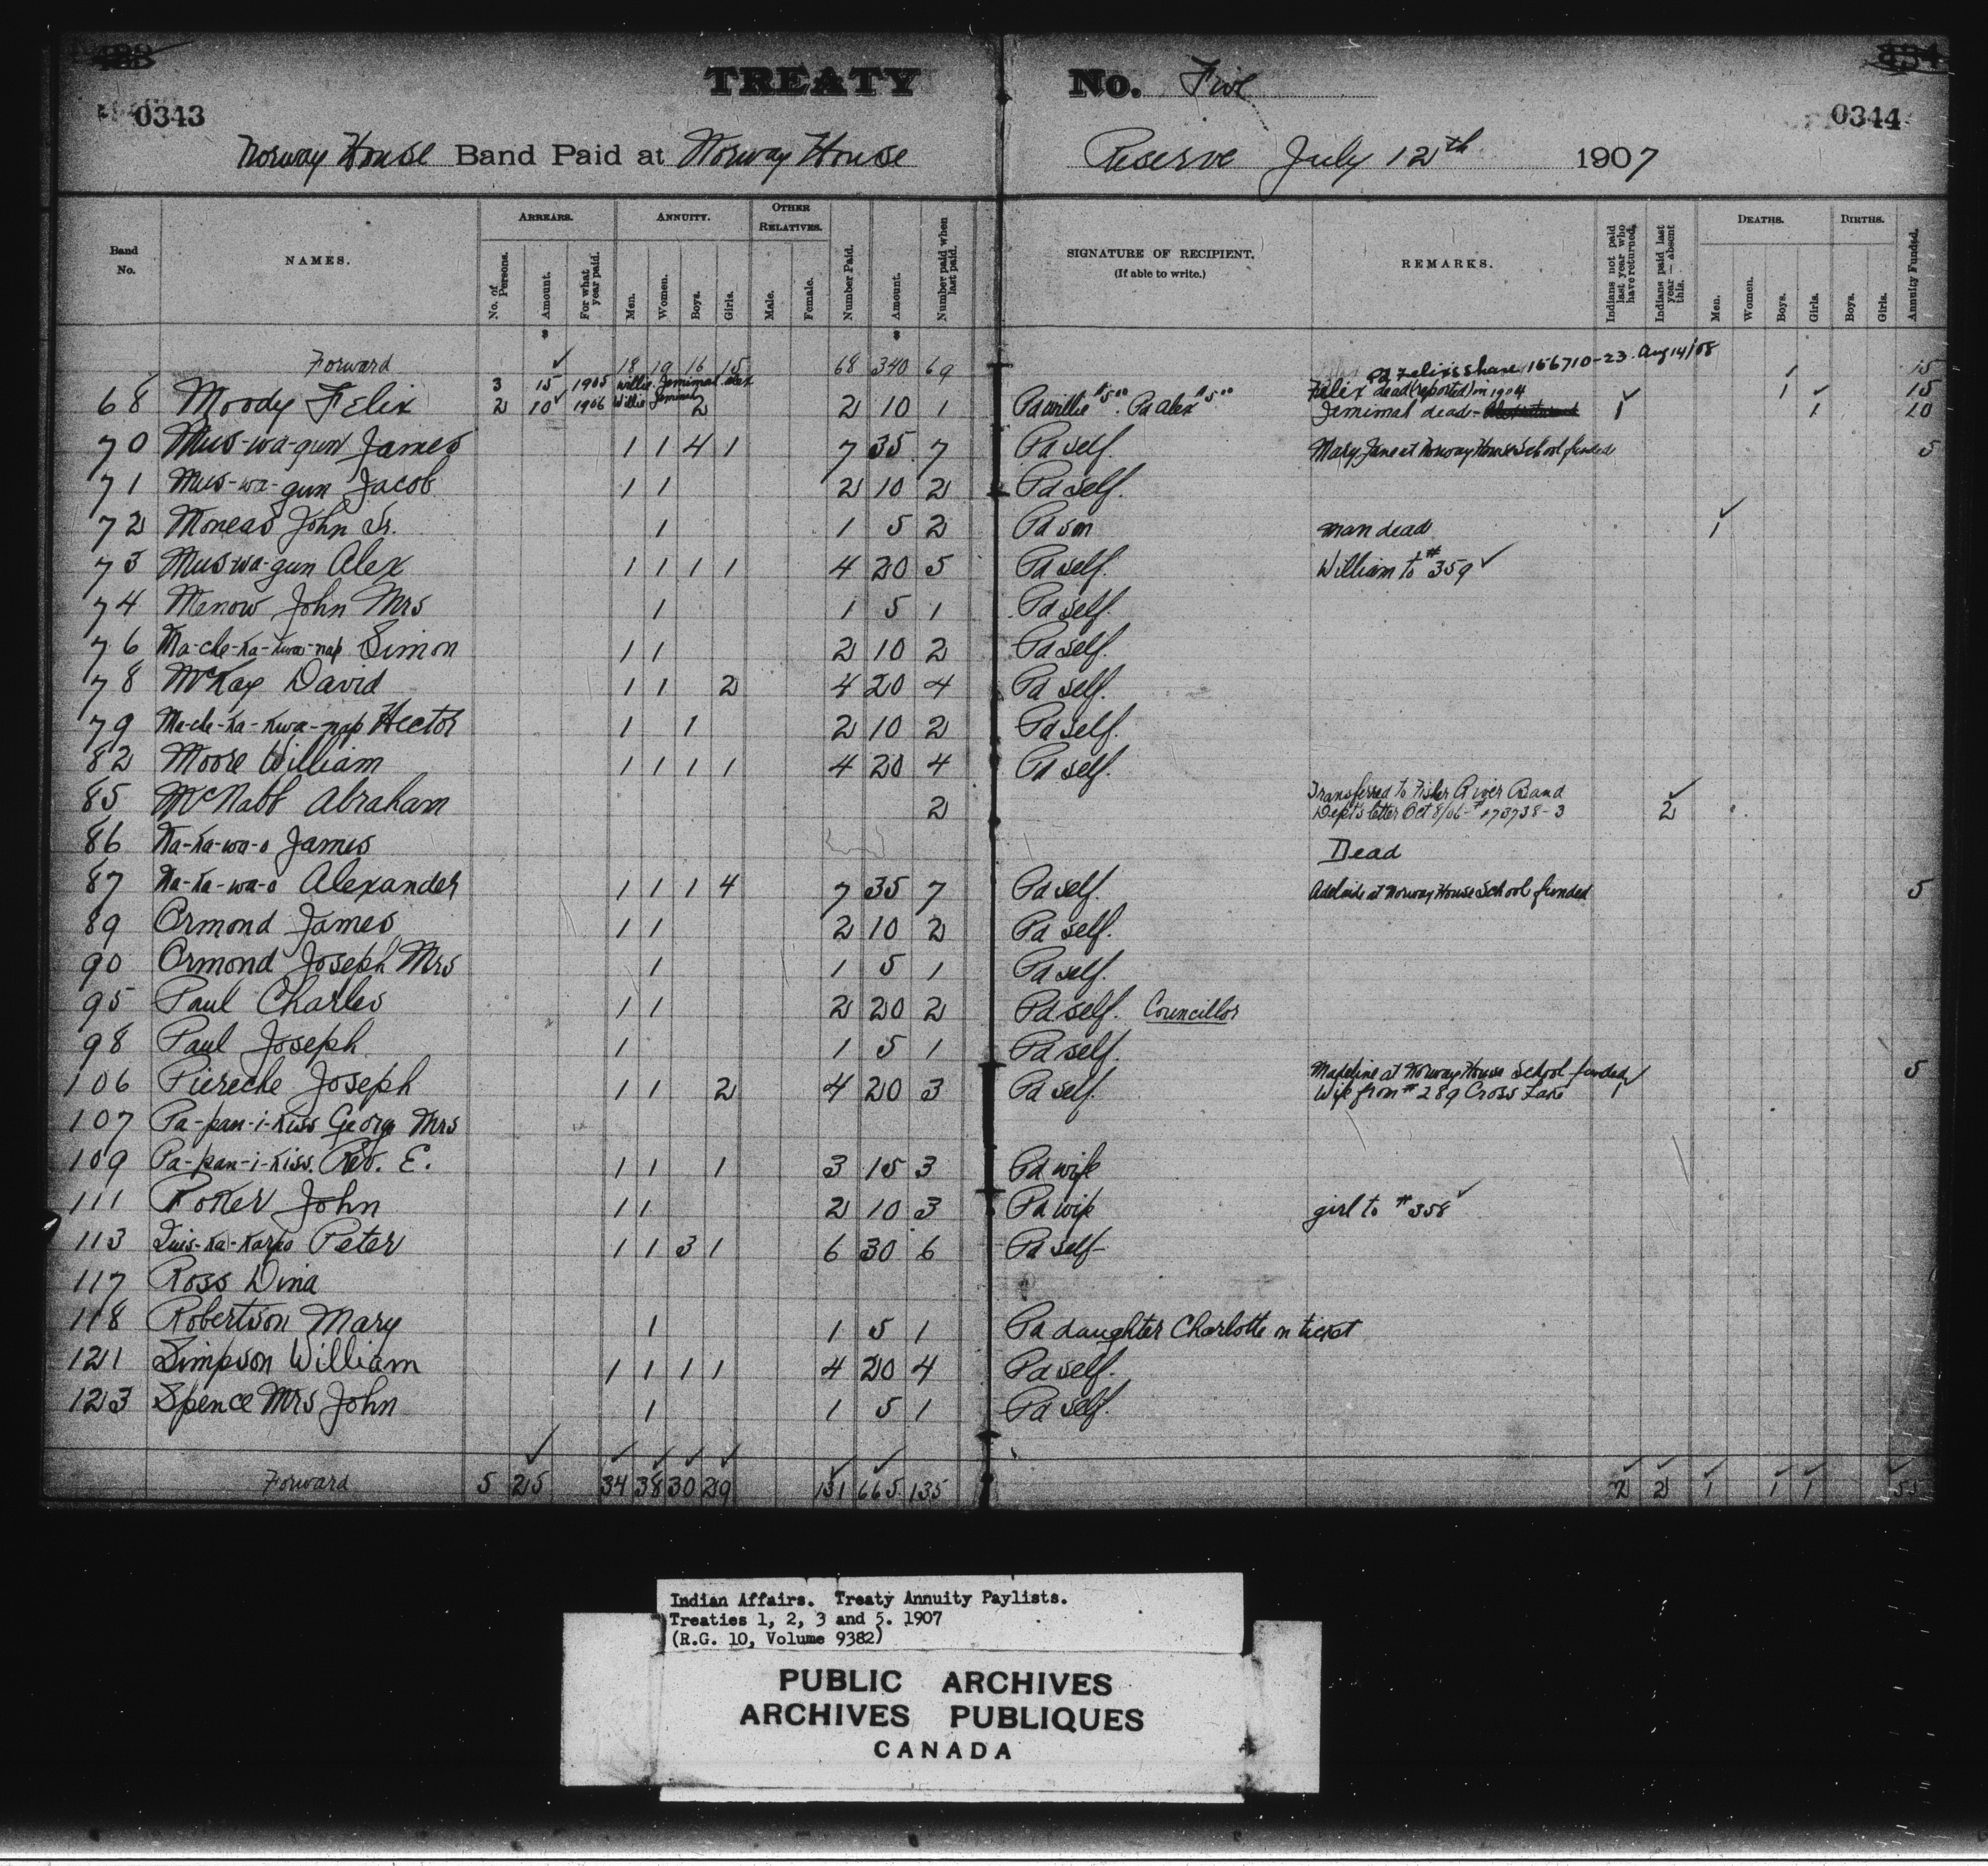 TREATY No. Five
0343
0344
Norway House Band Paid at Norway House Reserve July 12th 1907
Band No. NAMES. ARREARS. No. of Persons. Amount. For what year paid. ANNUITY. Men. Women. Boys. Girls. OTHER RELATIVES. Male. Female. Number Paid. Amount. Number paid when last paid. SIGNATURE OF RECIPIENT. (If able to write.) REMARKS. Indians not paid last year who have returned. Indians paid last year — absent this. DEATHS. Men. Women. Boys. Girls. BIRTHS. Boys. Girls. Annuity Funded.
Forward 18 19 16 15 68 340 69 Pd Felix's share 156710-23 Aug 14/08 1 15
3 15 1905 Willie Jemimah Alex Felix dead (reported) in 1904 1 15
68 Moody Felix 2 10 1906 Willie Jemimah 2 2 10 1 Pd Willie $5.00 Pd Alex $5.00 Jemimah dead - 1 1 10
70 Mus-wa-gun James 1 1 4 1 7 35 7 Pd self. Mary Jane at Norway House School funded 5
71 Mus-wa-gun Jacob 1 1 2 10 2 Pd self.
72 Moneas John Sr. 1 1 5 2 Pd son man dead 1
73 Mus-wa-gun Alex 1 1 1 1 4 20 5 Pd self. William to #359
74 Menow John Mrs 1 1 5 1 Pd self.
76 Ma-che-ka-kwa-nap Simon 1 1 2 10 2 Pd self.
78 McKay David 1 1 2 4 20 4 Pd self.
79 Ma-che-ka-kwa-nap Hector 1 1 2 10 2 Pd self.
82 Moore William 1 1 1 1 4 20 4 Pd self.
85 McNabb Abraham 2 Transferred to Fisher River Band 2
Dept's letter Oct 8/06 - #173738-3
86 Na-ka-wa-o James Dead
87 Na-ka-wa-o Alexander 1 1 1 4 7 35 7 Pd self. Adelaide at Norway House School funded 5
89 Ormond James 1 1 2 10 2 Pd self.
90 Ormond Joseph Mrs 1 1 5 1 Pd self.
95 Paul Charles 1 1 2 20 2 Pd self. Councillor
98 Paul Joseph 1 1 5 1 Pd self.
Madeline at Norway House School funded 5
106 Piereche Joseph 1 1 2 4 20 3 Pd self. Wife from #289 Cross Lake 1
107 Pa-pan-i-kiss George Mrs
109 Pa-pan-i-kiss. Rev. E. 1 1 1 3 15 3 Pd wife
111 Poker John 1 1 2 10 3 Pd wife girl to #358
113 Peter 1 1 3 1 6 30 6 Pd self
117 Ross Dina
118 Robertson Mary 1 1 5 1 Pd daughter Charlotte on ticket
121 Simpson William 1 1 1 1 4 20 4 Pd self.
123 Spence Mrs John 1 1 5 1 Pd self.
Forward 5 25 34 38 30 29 131 665 135 2 2 1 1 1 55
Indian Affairs. Treaty Annuity Paylists.
Treaties 1, 2, 3 and 5. 1907
(R.G. 10, Volume 9382)
PUBLIC ARCHIVES
ARCHIVES PUBLIQUES
CANADA